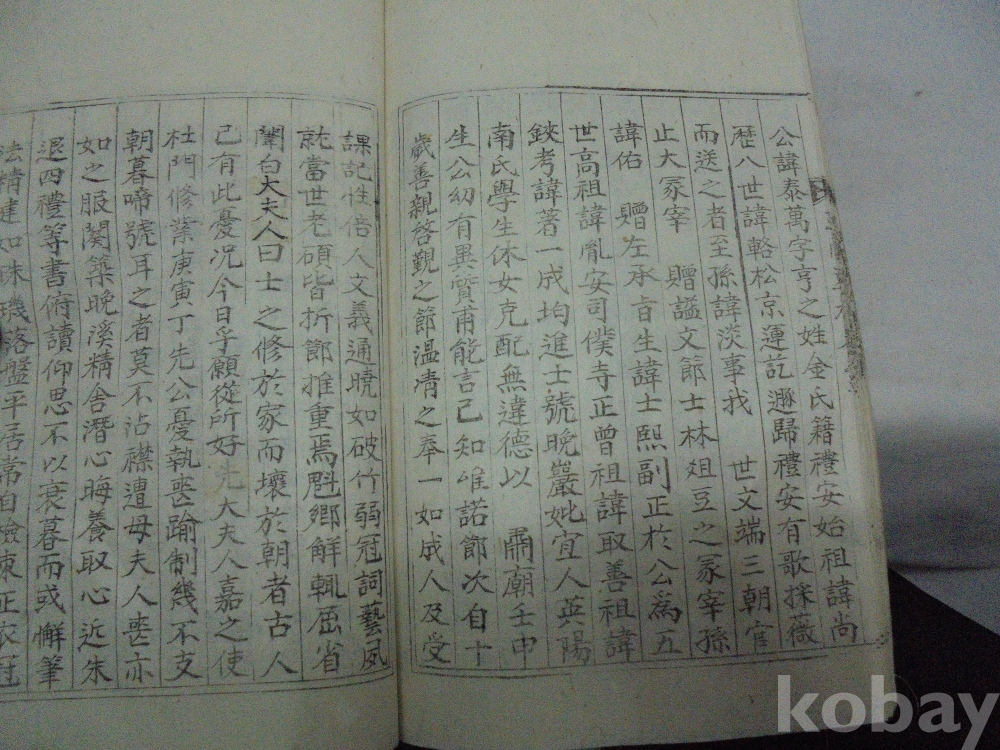 公諱泰萬字亨之姓金氏籍禮安始祖諱尚
歷八世諱輅松京運訖遯歸禮安有歌採薇
而送之者至孫諱淡事找 世文端三朝官
止大冢宰 贈謚文節士林俎豆之冢宰孫
諱佑 贈左承旨生諱士熙副正於公爲五
世高祖諱胤安司僕寺正曾祖諱取善祖諱
鋏考諱著一成均進士號晩巖妣宜人英陽
南氏學生休女克配無違德以 肅廟壬申
生公幼有異質甫能言已知唯諾節次自十
歲善親啓覲之節溫淸之奉一如成人及受
課記性倍人文義通曉如破竹弱冠詞藝夙
就當世老碩皆折節推重焉魁鄉解輒屈省
闈白大夫人曰士之修於家而壞於朝者古人
已有此憂况今日乎願從所好先大夫人嘉之使
杜門修業庚寅丁先公憂執喪踰制幾不支
朝暮啼號耳之者莫不沾襟遭母夫人喪亦
如之服闋築晩溪精舍潛心晦養取心近朱
退四禮等書俯讀仰思不以衰暮而或懈筆
法精健如珠璣落盤平居常自檢束正衣冠
kobay